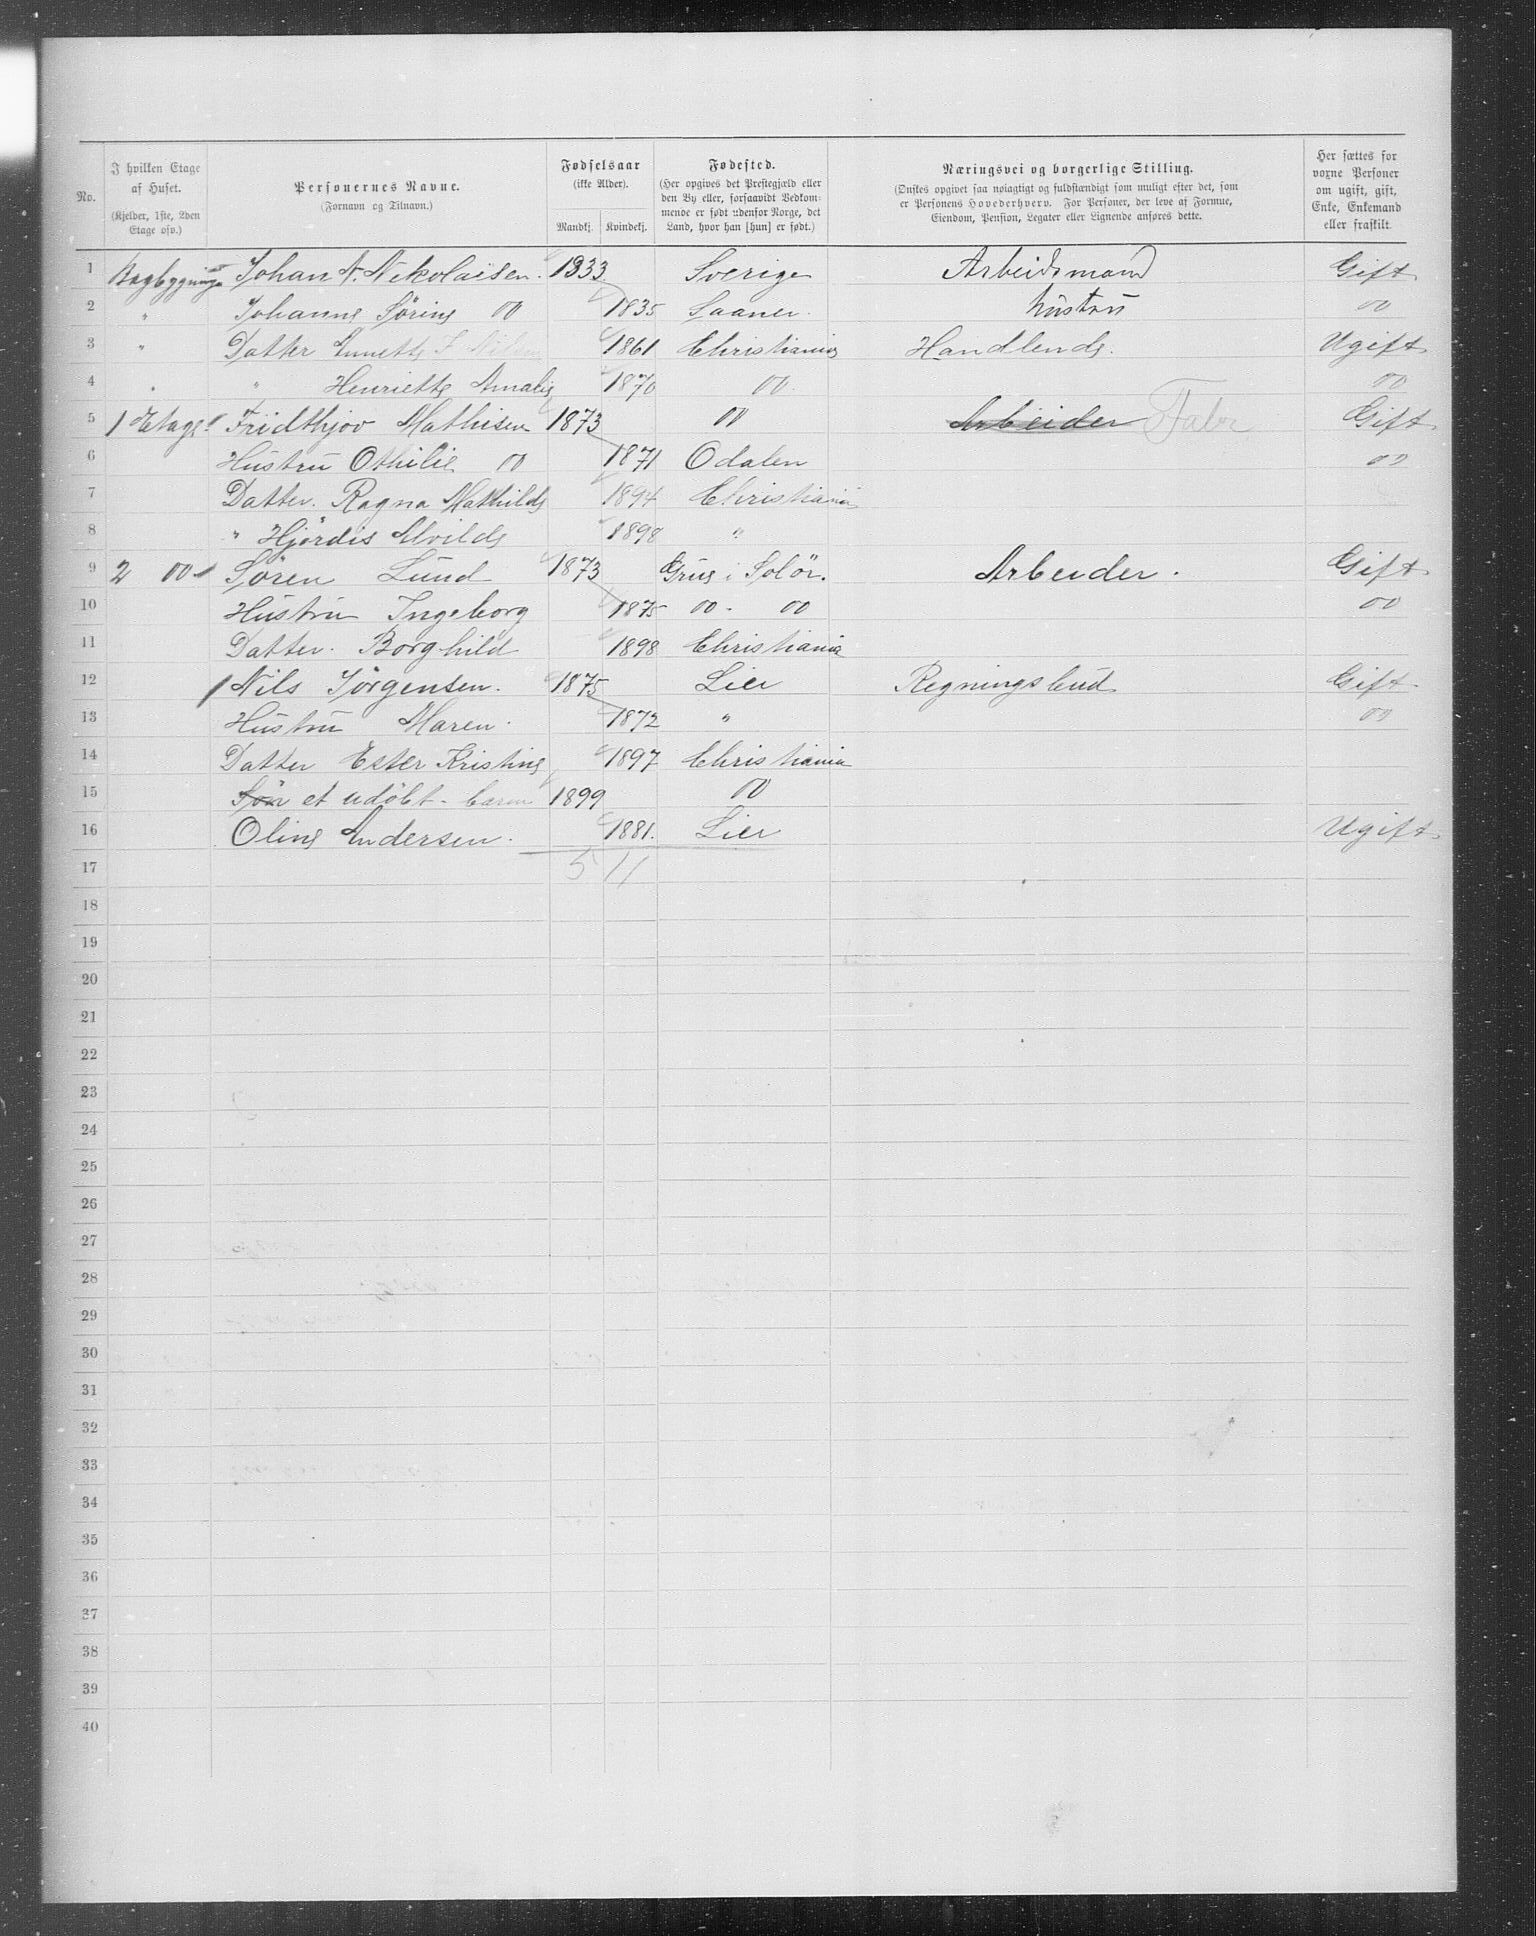 No.
I hvilken Etage af Huset. (Kjelder, 1ste, 2den Etage osv.)
Personernes Navne. (Fornavn og Tilnavn.)
Fødselsaar (ikke Alder). Mandkj. Kvindekj.
Fødested. (Her opgives det Prestegjæld eller den By eller, forsaavidt Vedkommende er født udenfor Norge, det Land, hvor han [hun] er født.)
Næringsvei og borgerlige Stilling. (Ønskes opgivet saa nøiagtigt og fuldstændigt som muligt efter det, som er Personens Hovederhverv. For Personer, der leve af Formue, Eiendom, Pension, Legater eller Lignende anføres dette.
Her sættes for voxne Personer om ugift, gift, Enke, Enkemand eller fraskilt.
1 Bagbygning Johan N. Nikolaisen. 1833 Sverige Arbeidsmand Gift
2 " Johanne Sørine do 1835 Saaner. hustru do
3 " Datter Annette 1861 Christiania Handlende. Ugift
4 " " Henriette Amalie 1870 do. do
5 1 Etage Fridthjov Mathisen 1873 do Arbeider Fabr Gift
6 Hustru Othilie do 1871 Odalen do
7 Datter. Ragna Mathilde 1894 Christiania
8 " Hjørdis Alvilde 1898 "
9 2 do Søren Lund 1873 Grue i Solør. Arbeider. Gift
10 Hustru Ingeborg 1875 do. do do
11 Datter. Borghild 1898 Christiania
12 Nils Jørgensen. 1875 Lier Regningsbud Gift
13 Hustru Maren. 1872 " do
14 Datter Ester Kristine 1897 Christiania
15 Søn et udøbt. barn 1899 do
16 Oline Andersen. 1881. Lier Ugift
17 5 11
18
19
20
21
22
23
24
25
26
27
28
29
30
31
32
33
34
35
36
37
38
39
40